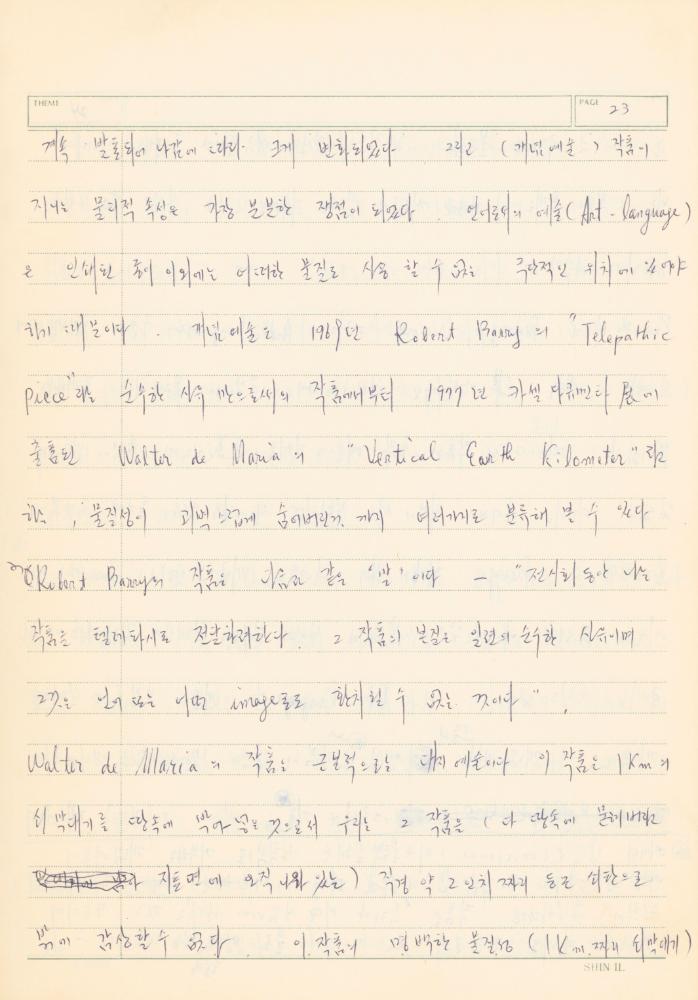 THEME
PAGE 23
계속 발표되어 나감에 따라 크게 변화되었다. 그리고 (개념예술) 작품이
지니는 물리적 속성은 가장 분분한 쟁점이 되었다. 언어로서의 예술(Art-language)
은 인쇄된 종이 이외에는 어떠한 물질도 사용 할 수 없는 극단적인 위치에 있어야
하기 때문이다. 개념예술은 1969년 Robert Barry의 "Telepathic
piece"라는 순수한 사유 만으로써의 작품에서부터 1977년 카셀 다큐멘타 展에
출품된 Walter de Maria의 "Vertical Earth Kilometer"라고
하는, 물질성이 괴벽스럽게 숨어버린것 까지 여러가지로 분류해 볼 수 있다
Robert Barry의 작품은 다음과 같은 '말'이다 — "전시회 동안 나는
작품을 텔레파시로 전달하려한다. 그 작품의 본질은 일련의 순수한 사유이며
그것은 언어 또는 어떤 image로도 환치될 수 없는 것이다".
Walter de Maria의 작품은 근본적으로는 대지예술이다 이 작품은 1Km의
쇠막대기를 땅속에 박아 넣는 것으로서 우리는 그 작품을 (다 땅속에 묻혀버리고
지틀면에 오직 나와 있는) 직경 약 2인치 짜리 둥근 쇠판으로
밖에 감상할 수 없다. 이 작품의 명백한 물질성 (1Km 짜리 쇠막대기)
SHIN IL